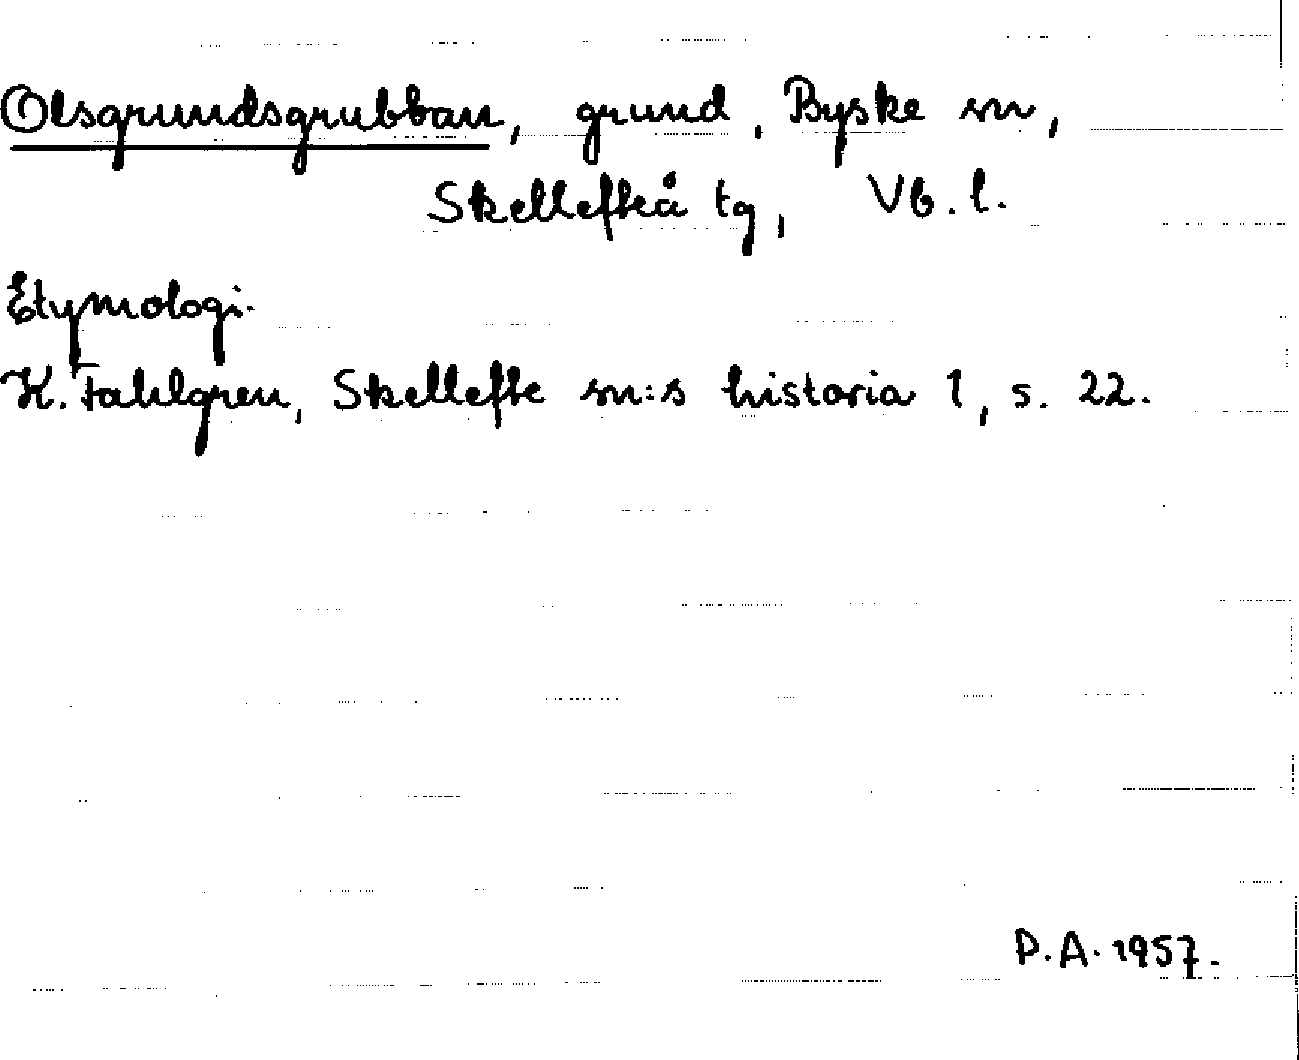 Olsgrundsgrubban, grund, Byske sn,
Skellefteå tg, Vb. l.
Etymologi.
K. Fahlgren, Skellefte sn:s historia 1, s. 22.
P.A. 1957.